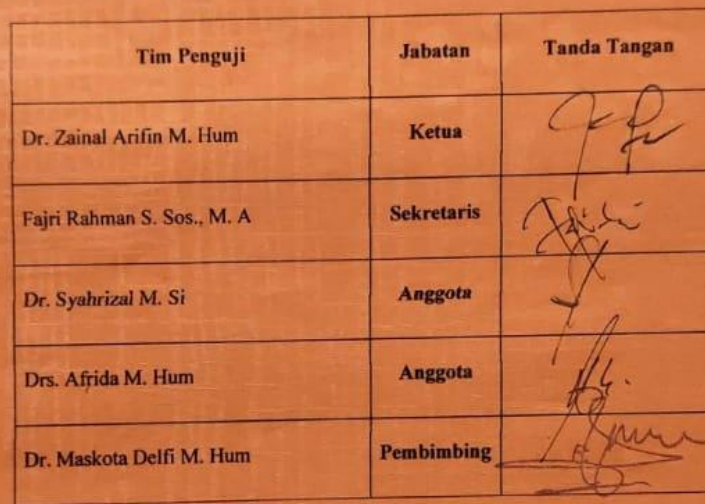 Tim Penguji Jabatan Tanda Tangan
Dr. Zainal Arifin M. Hum Ketua
Fajri Rahman S. Sos., M. A Sekretaris
Dr. Syahrizal M. Si Anggota
Drs. Afrida M. Hum Anggota
Dr. Maskota Delfi M. Hum Pembimbing